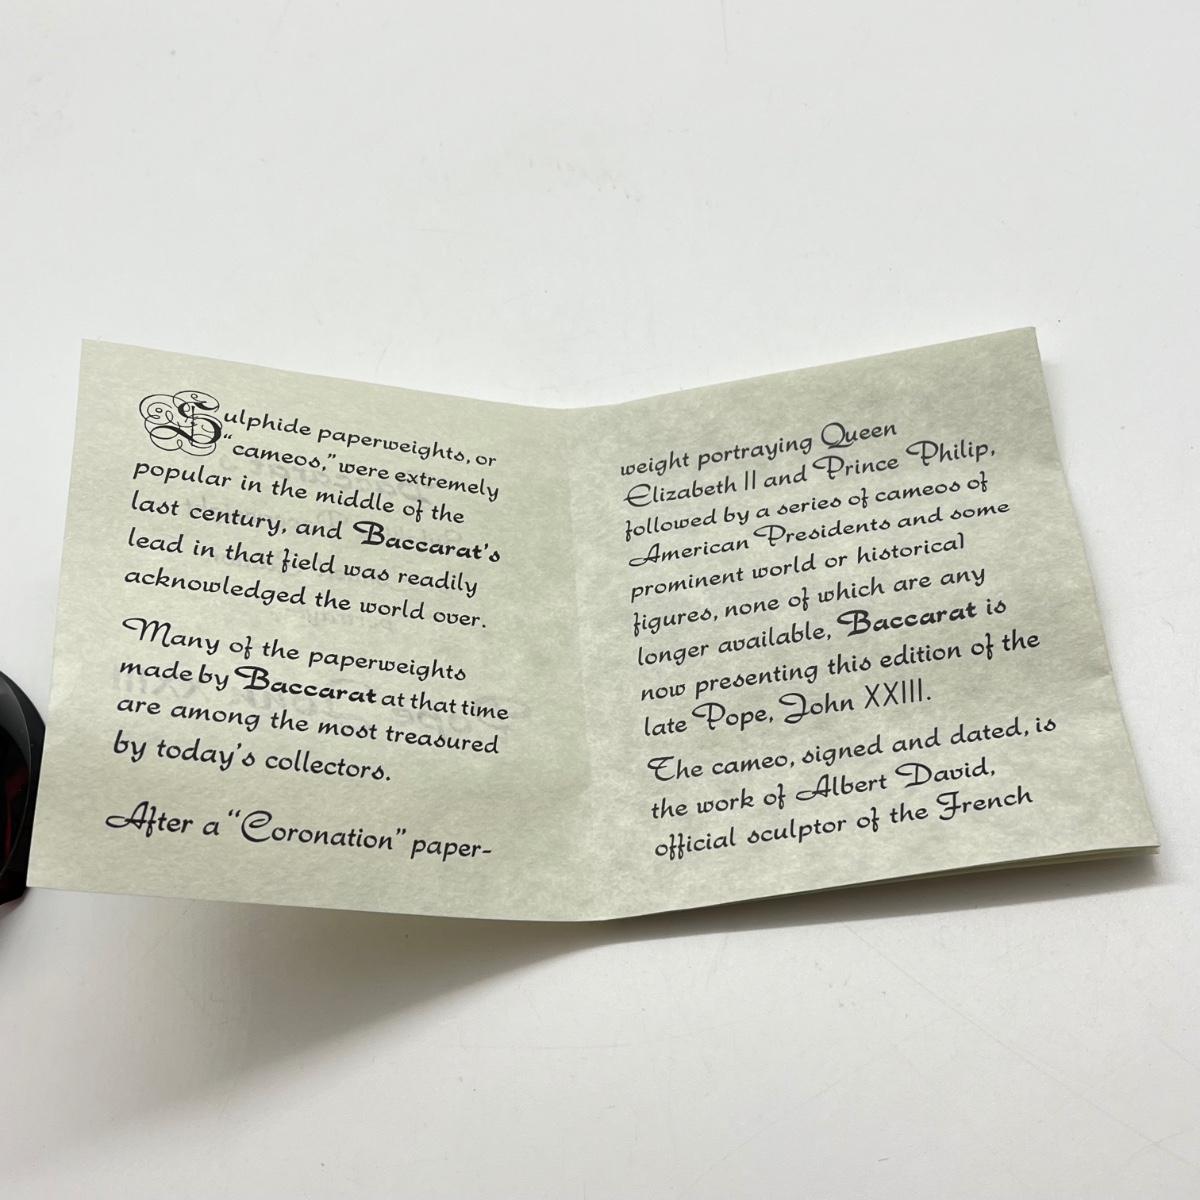 Sulphide paperweights, or
"cameos," were extremely
popular in the middle of the
last century, and Baccarat's
lead in that field was readily
acknowledged the world over.
Many of the paperweights
made by Baccarat at that time
are among the most treasured
by today's collectors.
After a "Coronation" paper-
weight portraying Queen
Elizabeth II and Prince Philip,
followed by a series of cameos of
American Presidents and some
prominent world or historical
figures, none of which are any
longer available, Baccarat is
now presenting this edition of the
late Pope, John XXIII.
The cameo, signed and dated, is
the work of Albert David,
official sculptor of the French